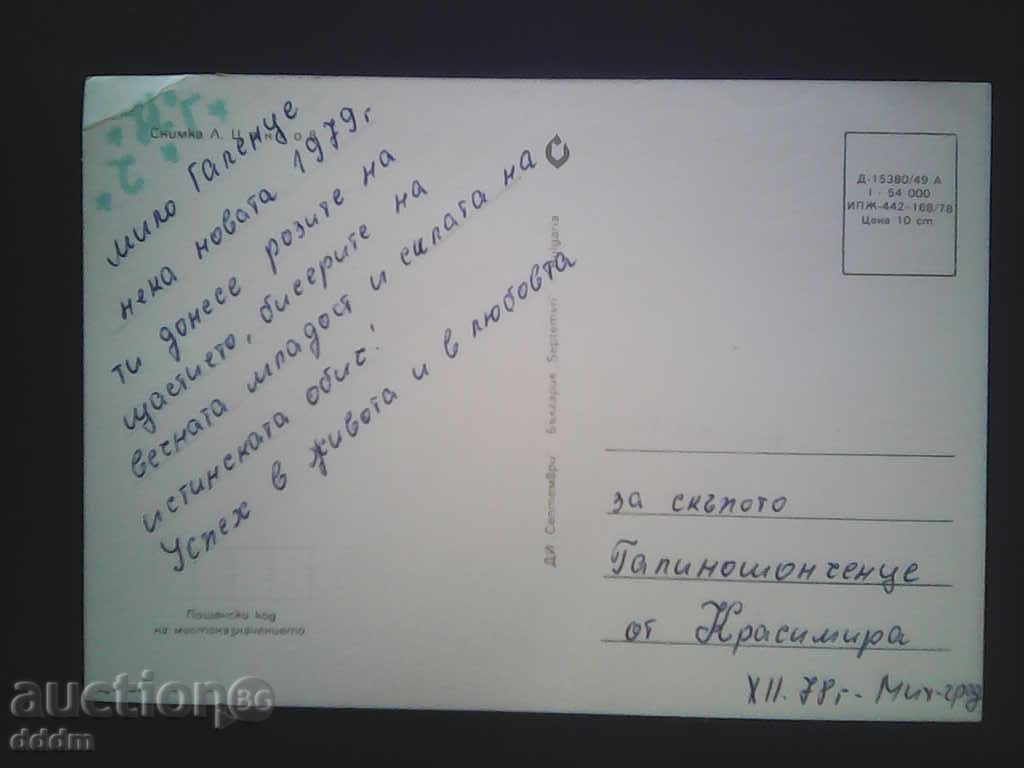 Снимка Л. Ц н о
мило Галенце
нека новата 1979 г
ти донесе розите на
щастието, бисерите на
вечната младост и силата на
истинската обич!
Успех в живота и в любовта
Пощенски код
на местоназначението
ДИ Септември България Septemvri Bulgaria
Д-15380/49 А
I - 54 000
ИПЖ-442-168/78
Цена 10 ст.
за скъпото
Галиношонченце
от Красимира
XII. 78 г. Мих-град
auctionBG
dddm